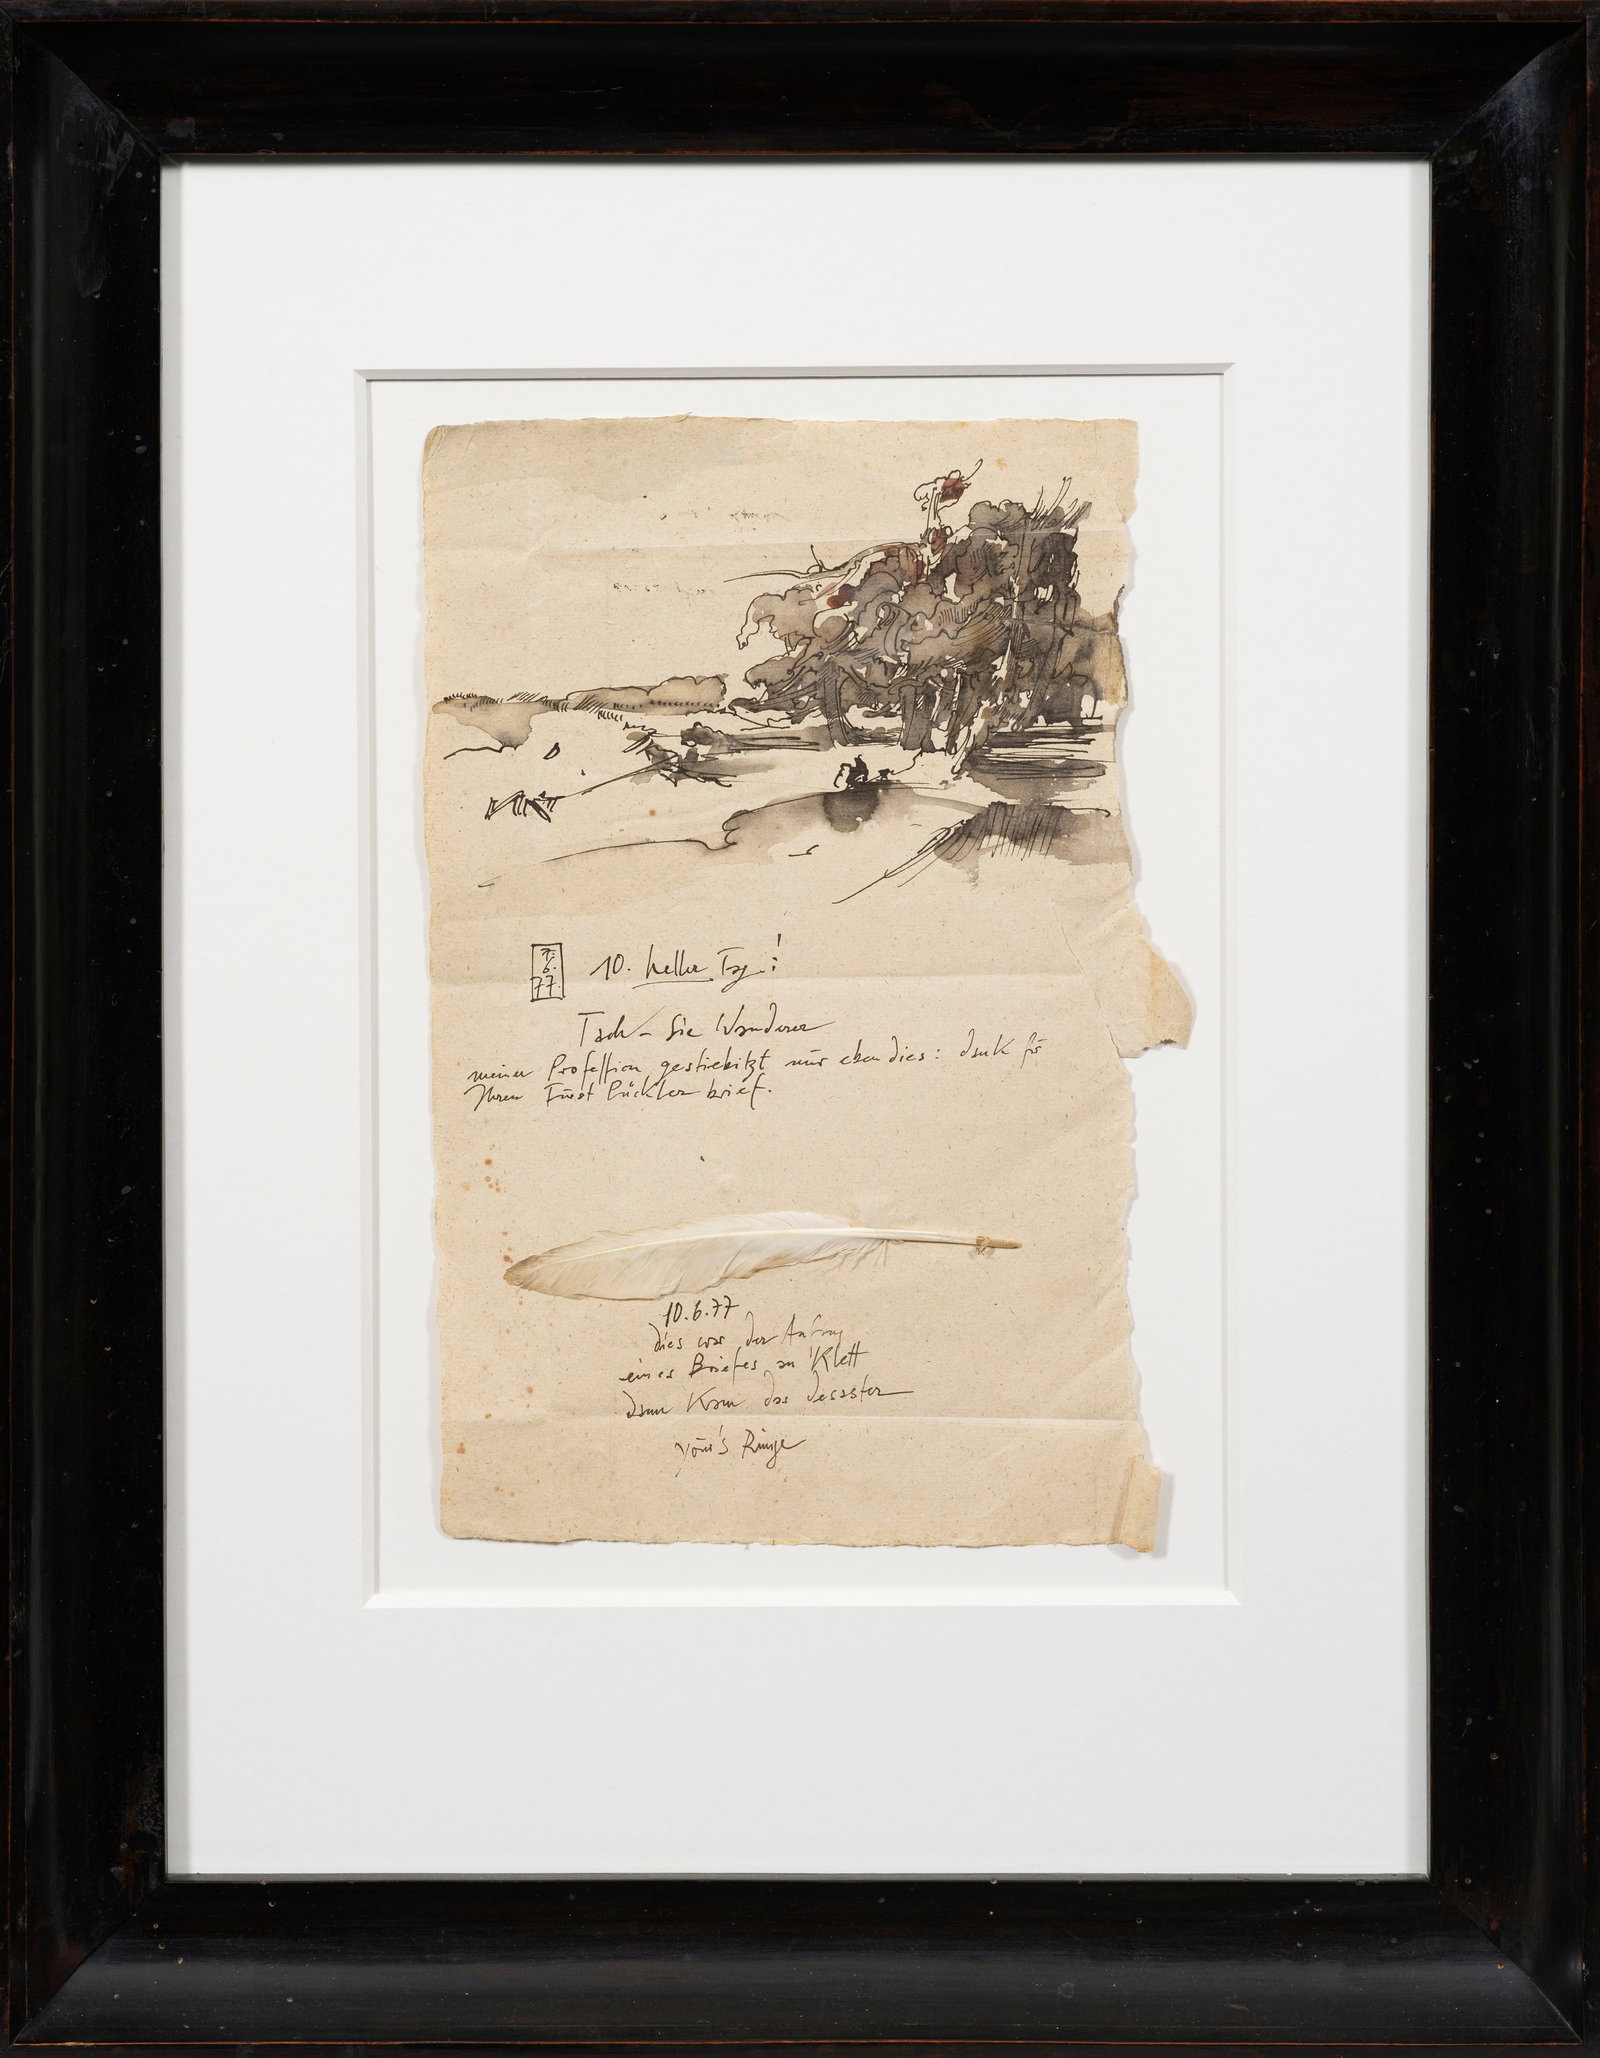 7.
6.
77.
10. heller Tag!
Tach – Sie Wanderer
meiner Profession gestiebitzt nur eben dies: dank für
Ihren Fürst Pückler brief.
10.6.77
dies war der Anfang
eines Briefes an Klett
dann kam das desaster